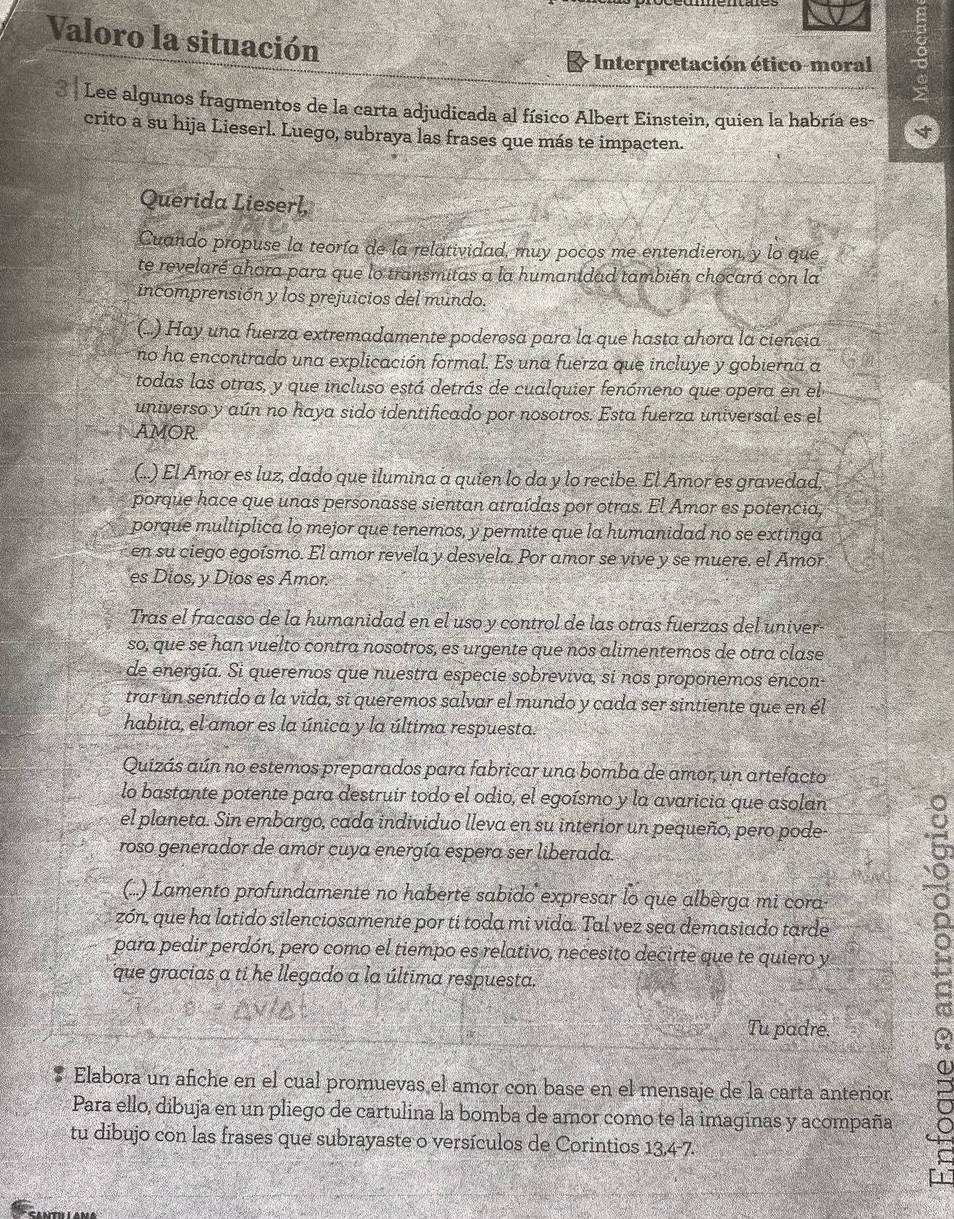 Valoro la situación
Interpretación ético-moral
Me docume
4
3 Lee algunos fragmentos de la carta adjudicada al físico Albert Einstein, quien la habría es-
crito a su hija Lieserl. Luego, subraya las frases que más te impacten.
Querida Lieserl,
Cuando propuse la teoría de la relatividad, muy pocos me entendieron, y lo que
te revelaré ahora para que lo transmitas a la humanidad también chocará con la
incomprensión y los prejuicios del mundo.
(...) Hay una fuerza extremadamente poderosa para la que hasta ahora la ciencia
no ha encontrado una explicación formal. Es una fuerza que incluye y gobierna a
todas las otras, y que incluso está detrás de cualquier fenómeno que opera en el
universo y aún no haya sido identificado por nosotros. Esta fuerza universal es el
AMOR.
(...) El Amor es luz, dado que ilumina a quien lo da y lo recibe. El Amor es gravedad,
porque hace que unas personasse sientan atraídas por otras. El Amor es potencia,
porque multiplica lo mejor que tenemos, y permite que la humanidad no se extinga
en su ciego egoísmo. El amor revela y desvela. Por amor se vive y se muere. el Amor
es Dios, y Dios es Amor.
Tras el fracaso de la humanidad en el uso y control de las otras fuerzas del univer-
so, que se han vuelto contra nosotros, es urgente que nos alimentemos de otra clase
de energía. Si queremos que nuestra especie sobreviva, si nos proponemos encon-
trar un sentido a la vida, si queremos salvar el mundo y cada ser sintiente que en él
habita, el amor es la única y la última respuesta.
Quizás aún no estemos preparados para fabricar una bomba de amor, un artefacto
lo bastante potente para destruir todo el odio, el egoísmo y la avaricia que asolan
el planeta. Sin embargo, cada individuo lleva en su interior un pequeño, pero pode-
roso generador de amor cuya energía espera ser liberada.
(...) Lamento profundamente no haberte sabido expresar lo que alberga mi cora-
zón, que ha latido silenciosamente por ti toda mi vida. Tal vez sea demasiado tarde
para pedir perdón, pero como el tiempo es relativo, necesito decirte que te quiero y
que gracias a ti he llegado a la última respuesta.
= Δv/Δt
Tu padre.
Elabora un afiche en el cual promuevas el amor con base en el mensaje de la carta anterior.
Para ello, dibuja en un pliego de cartulina la bomba de amor como te la imaginas y acompaña
tu dibujo con las frases que subrayaste o versículos de Corintios 13,4-7.
Enfoque antropológico
SANTILLANA